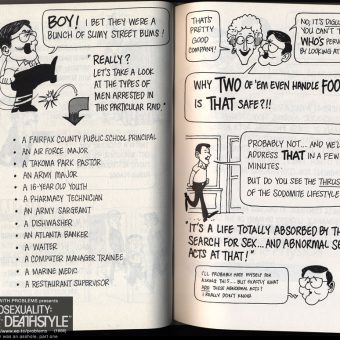 BOY! I BET THEY WERE A
BUNCH OF SLIMY STREET BUMS!
"REALLY?
LET'S TAKE A LOOK
AT THE TYPES OF
MEN ARRESTED IN
THIS PARTICULAR RAID."
• A FAIRFAX COUNTY PUBLIC SCHOOL PRINCIPAL
• AN AIR FORCE MAJOR
• A TAKOMA PARK PASTOR
• AN ARMY MAJOR
• A 16-YEAR OLD YOUTH
• A PHARMACY TECHNICIAN
• AN ARMY SARGEANT
• A DISHWASHER
• AN ATLANTA BANKER
• A WAITER
• A COMPUTER MANAGER TRAINEE
• A MARINE MEDIC
• A RESTAURANT SUPERVISOR
WITH PROBLEMS presents
OSEXUALITY:
DEATHSTYLE
was an asshole, part one
THAT'S
PRETTY
GOOD
COMPANY!
NO, IT'S
YOU CAN'T
WHO'S
BY LOOKING
WHY TWO OF 'EM EVEN HANDLE FOO
IS THAT SAFE?!!
PROBABLY NOT... AND WE'LL
ADDRESS THAT IN A FEW
MINUTES.
BUT DO YOU SEE THE THRUS
OF THE SODOMITE LIFESTYLE
"IT'S A LIFE TOTALLY ABSORBED BY THE
SEARCH FOR SEX... AND ABNORMAL SE
ACTS AT THAT!"
I'LL PROBABLY HATE MYSELF FOR
ASKING THIS... BUT EXACTLY WHAT
ARE THESE ABNORMAL ACTS?
I REALLY DON'T KNOW.